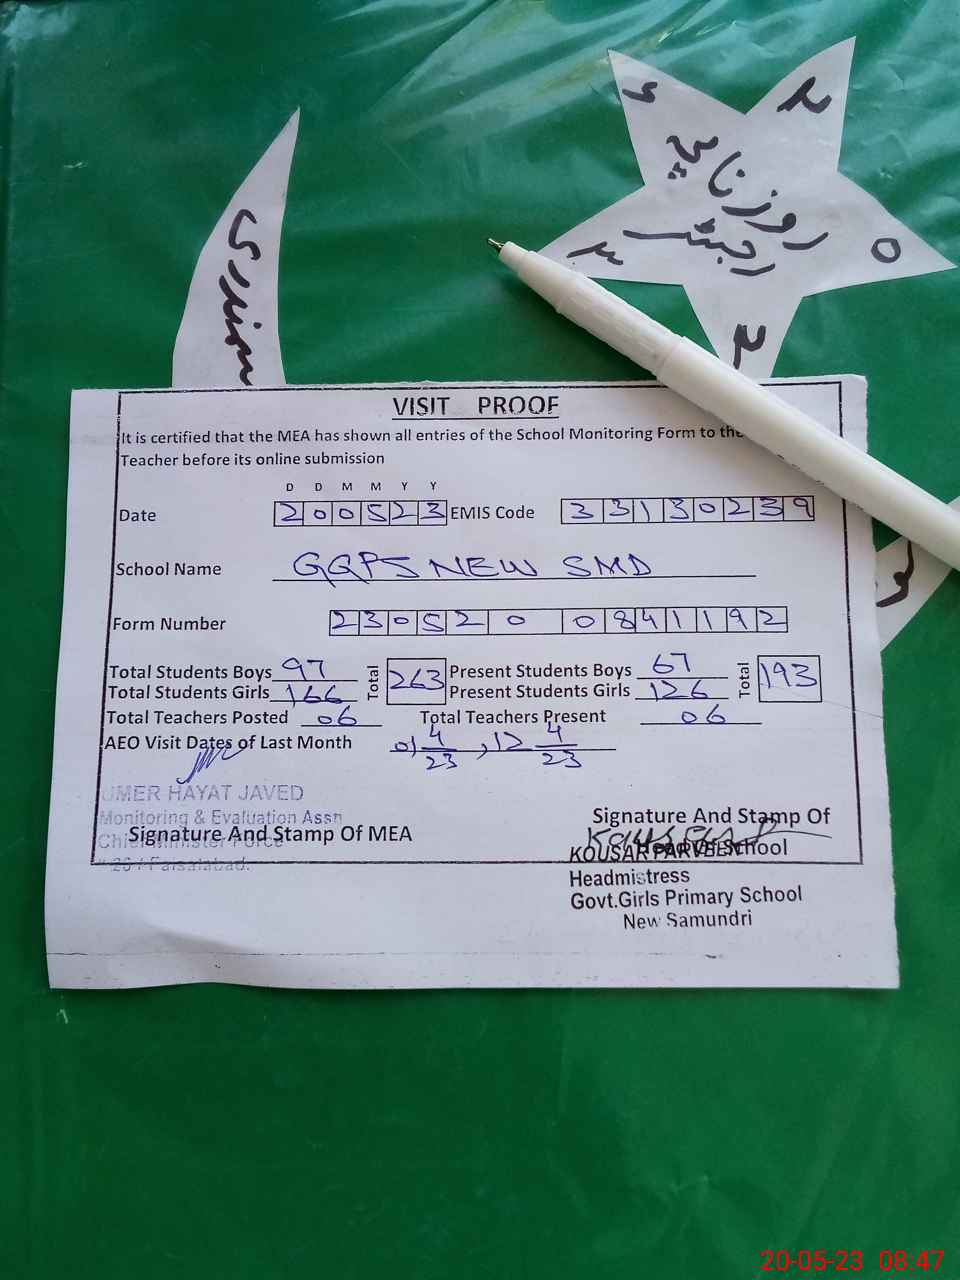 2
0
2
3
6
روزنامچہ
رجسٹر
سمندری
VISIT PROOF
It is certified that the MEA has shown all entries of the School Monitoring Form to the
Teacher before its online submission
D D M M Y Y
Date 200523 EMIS Code 33130239
School Name GGPS NEW SMD
Form Number 230520 0841192
Total Students Boys 97 Total 263 Present Students Boys 67 Total 193
Total Students Girls 166 Present Students Girls 126
Total Teachers Posted 06 Total Teachers Present 06
AEO Visit Dates of Last Month 01 4/23, 12 4/23
UMER HAYAT JAVED
Monitoring & Evaluation Asstt
Chief Minister Force
Signature And Stamp Of MEA
Faisalabad.
Signature And Stamp Of
Head Of School
KOUSAR PARVEEN
Headmistress
Govt.Girls Primary School
New Samundri
20-05-23 08:47